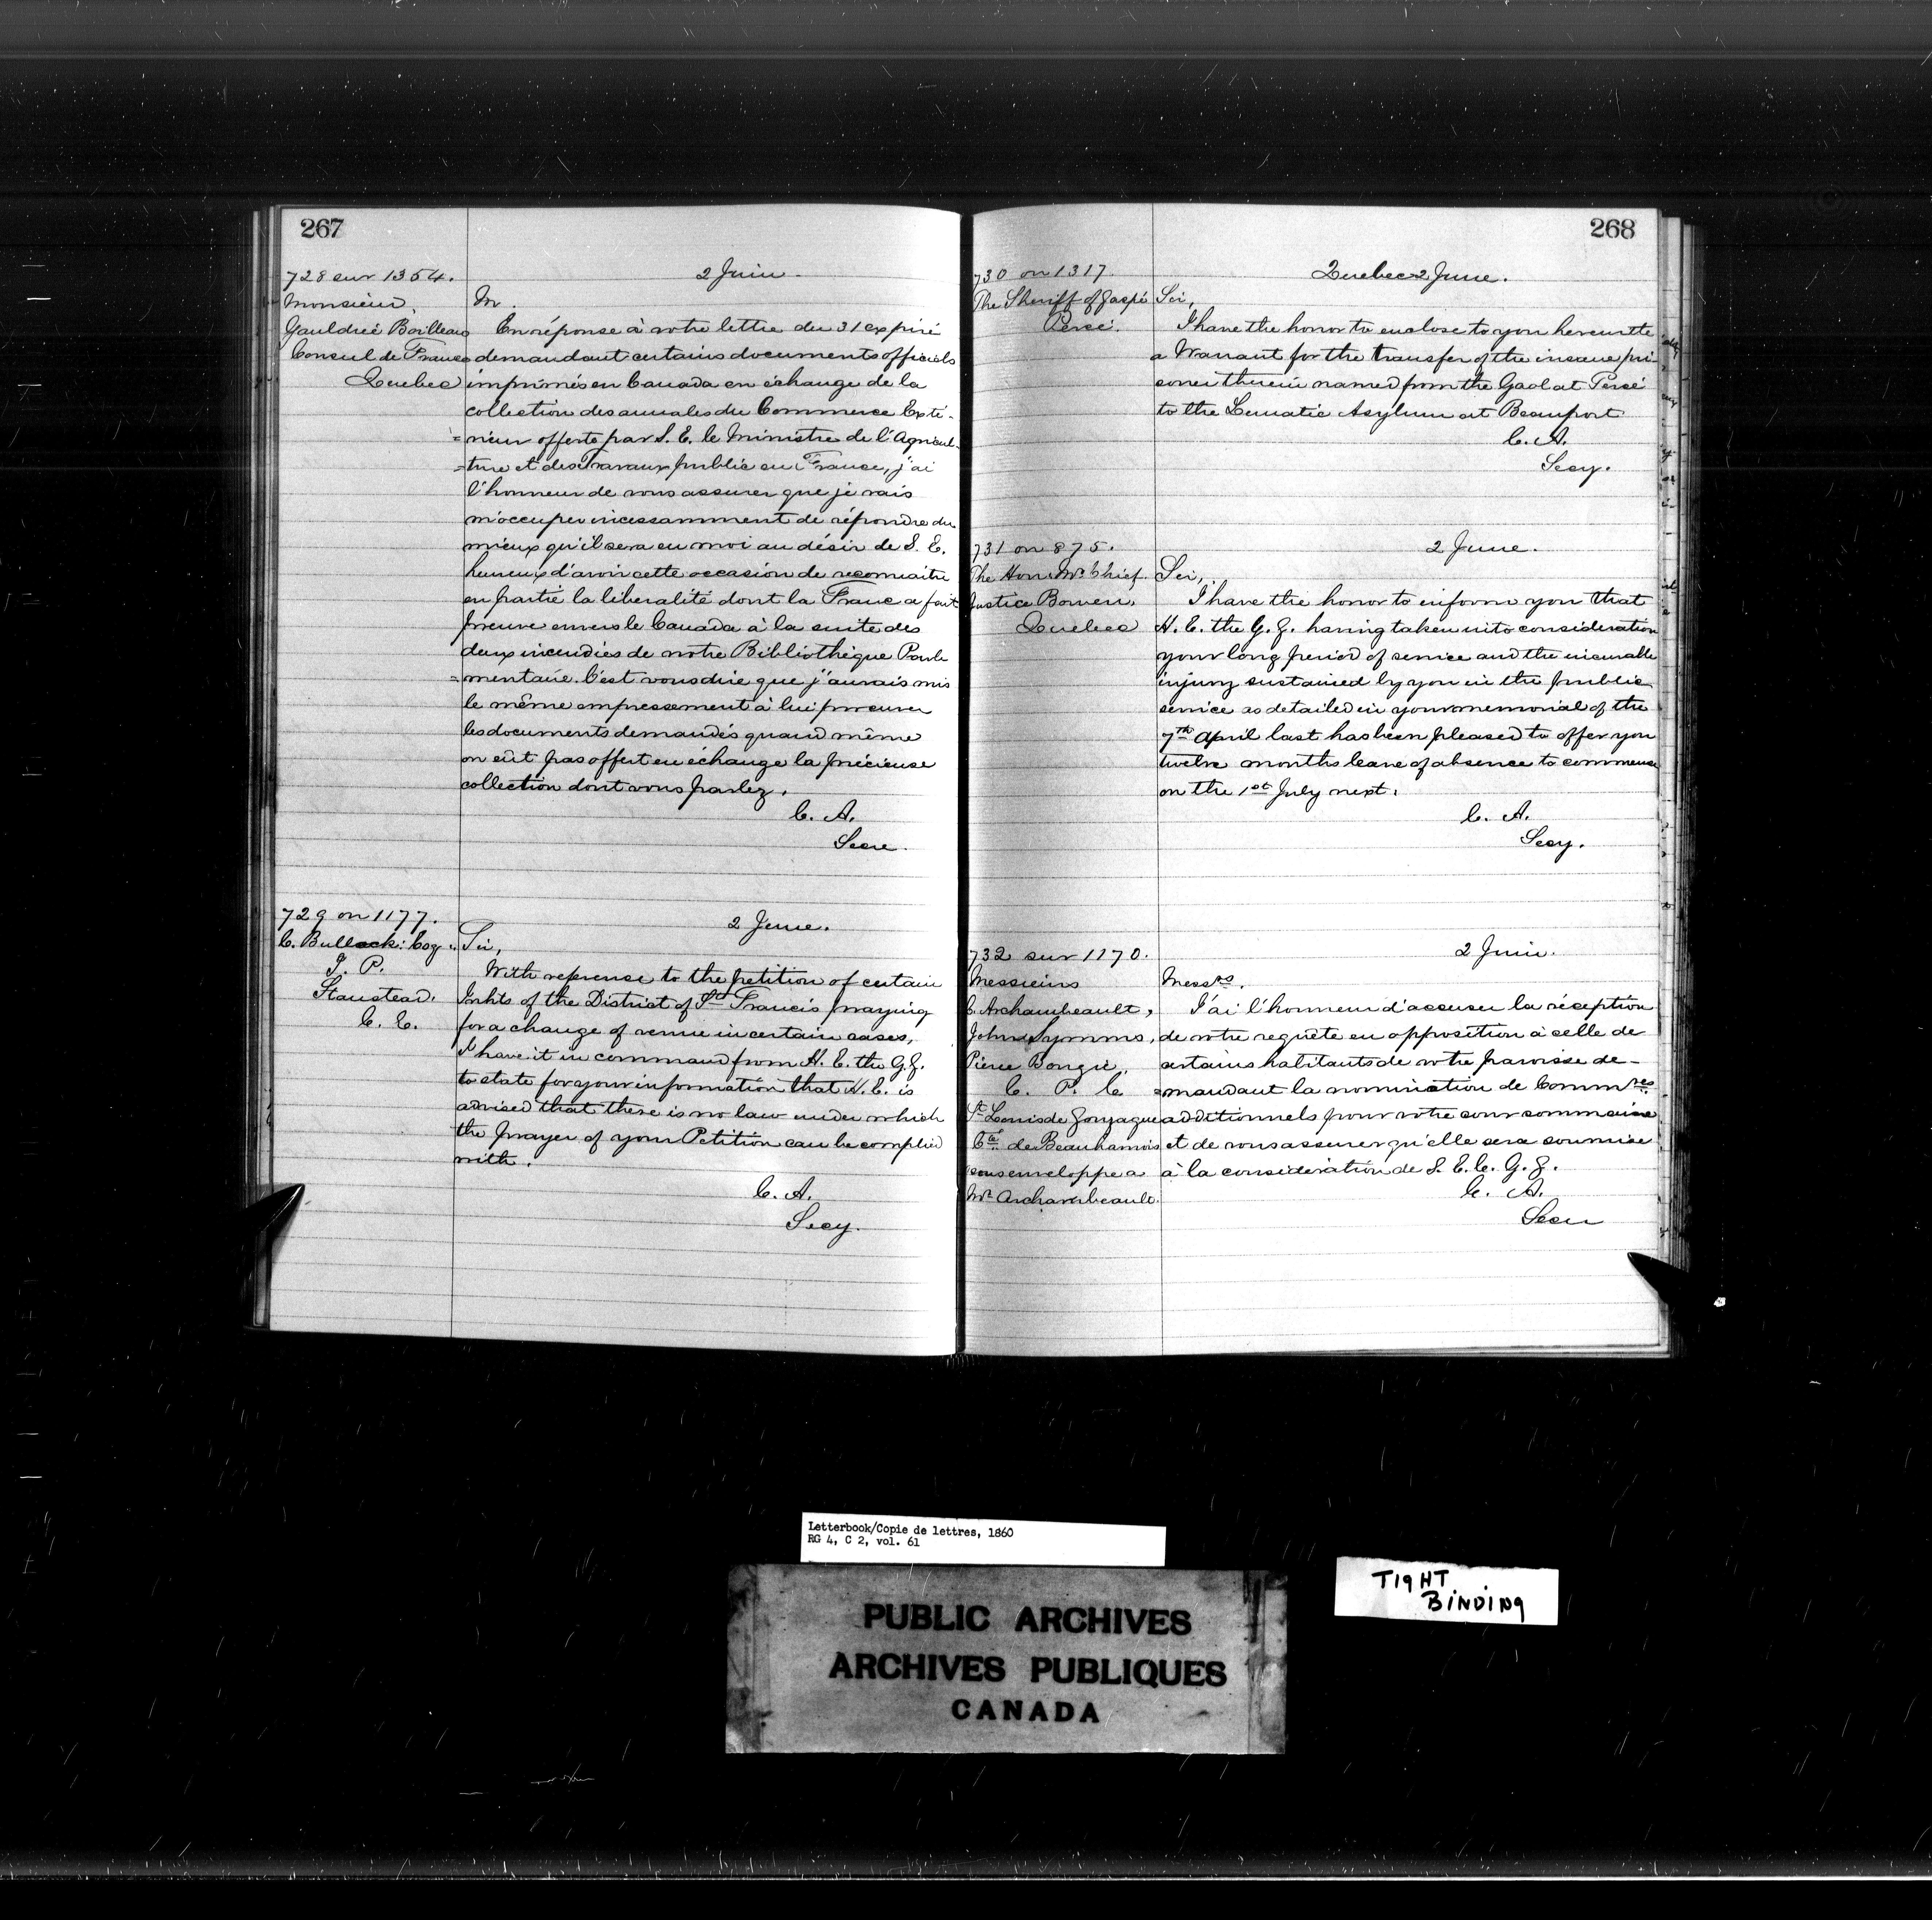 267
728 sur 1354.
Monsieur
Gauldrée Boilleau
Consul de France
Quebec
2 Juin.
M.
En réponse à votre lettre du 31 expiré
demandant certains documents officiels
imprimés en Canada en échange de la
collection des annales du Commerce Exté-
=rieur offerte par S. E. le Ministre de l'Agricul-
=ture et des Travaux public en France, j'ai
l'honneur de vous assurer que je vais
m'occuper incessamment de répondre du
mieux qu'il sera en moi au désir de S. E.
heureux d'avoir cette occasion de reconnaitre
en partie la libéralité dont la Franc a fait
preuve envers le Canada à la suite des
deux incendies de notre Bibliothèque Parle
=mentaire. C'est vous dire que j'aurais mis
le même empressement à lui procurer
les documents demandés quand même
on eût pas offert en échange la précieuse
collection dont vous parlez.
C. A.
Secre.
729 on 1177.
C. Bullock: Esq.
J. P.
Stanstead.
C. E.
2 June.
Sir,
With reference to the petition of certain
Inhts of the District of St Francis praying
for a change of venue in certain cases,
I have it in command from H. E. the G. G.
to state for your information that H. E. is
advised that there is no law under which
the prayer of your Petition can be complied
with.
C. A.
Secy.
268
730 on 1317.
The Sheriff of Gaspé
Percé.
Quebec 2 June.
Sir,
I have the honor to enclose to you herewith
a Warrant for the transfer of the insane pri
soner therein named from the Gaol at Percé
to the Lunatic Asylum at Beauport
C. A.
Secy.
731 on 875.
The Hon. Mr. Chief
Justice Bowen,
Quebec
2 June.
Sir,
I have the honor to inform you that
H. E. the G. G. having taken into consideration
your long period of service and the incurable
injury sustained by you in the public
service as detailed in your memorial of the
7th April last has been pleased to offer you
twelve months leave of absence to commence
on the 1st July next.
C. A.
Secy.
732 sur 1170.
Messieurs
E. Archambeault,
John Symms,
Pierre Bougie,
C. P. C
St Louis de Gonzague
Cté de Beauharnois
sous enveloppe a
Mr Archambeault.
2 Juin.
Messrs.
J'ai l'honneur d'accuser la réception
de votre requête en opposition à celle de
certains habitants de votre paroisse de-
=mandant la nomination de Commres
additionnels pour votre cour sommaire
et de vous assurer qu'elle sera soumise
à la considération de S. E. le G. G.
C. A.
Secre
Letterbook/Copie de lettres, 1860
RG 4, C 2, vol. 61
PUBLIC ARCHIVES
ARCHIVES PUBLIQUES
CANADA
TIGHT
BINDING